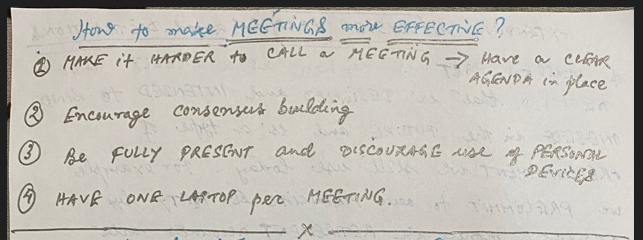 How to make MEETINGS more EFFECTIVE?
① MAKE it HARDER to CALL a MEETING → Have a CLEAR
AGENDA in place
② Encourage consensus building
③ Be FULLY PRESENT and DISCOURAGE use of PERSONAL
DEVICES
④ HAVE ONE LAPTOP per MEETING.
x